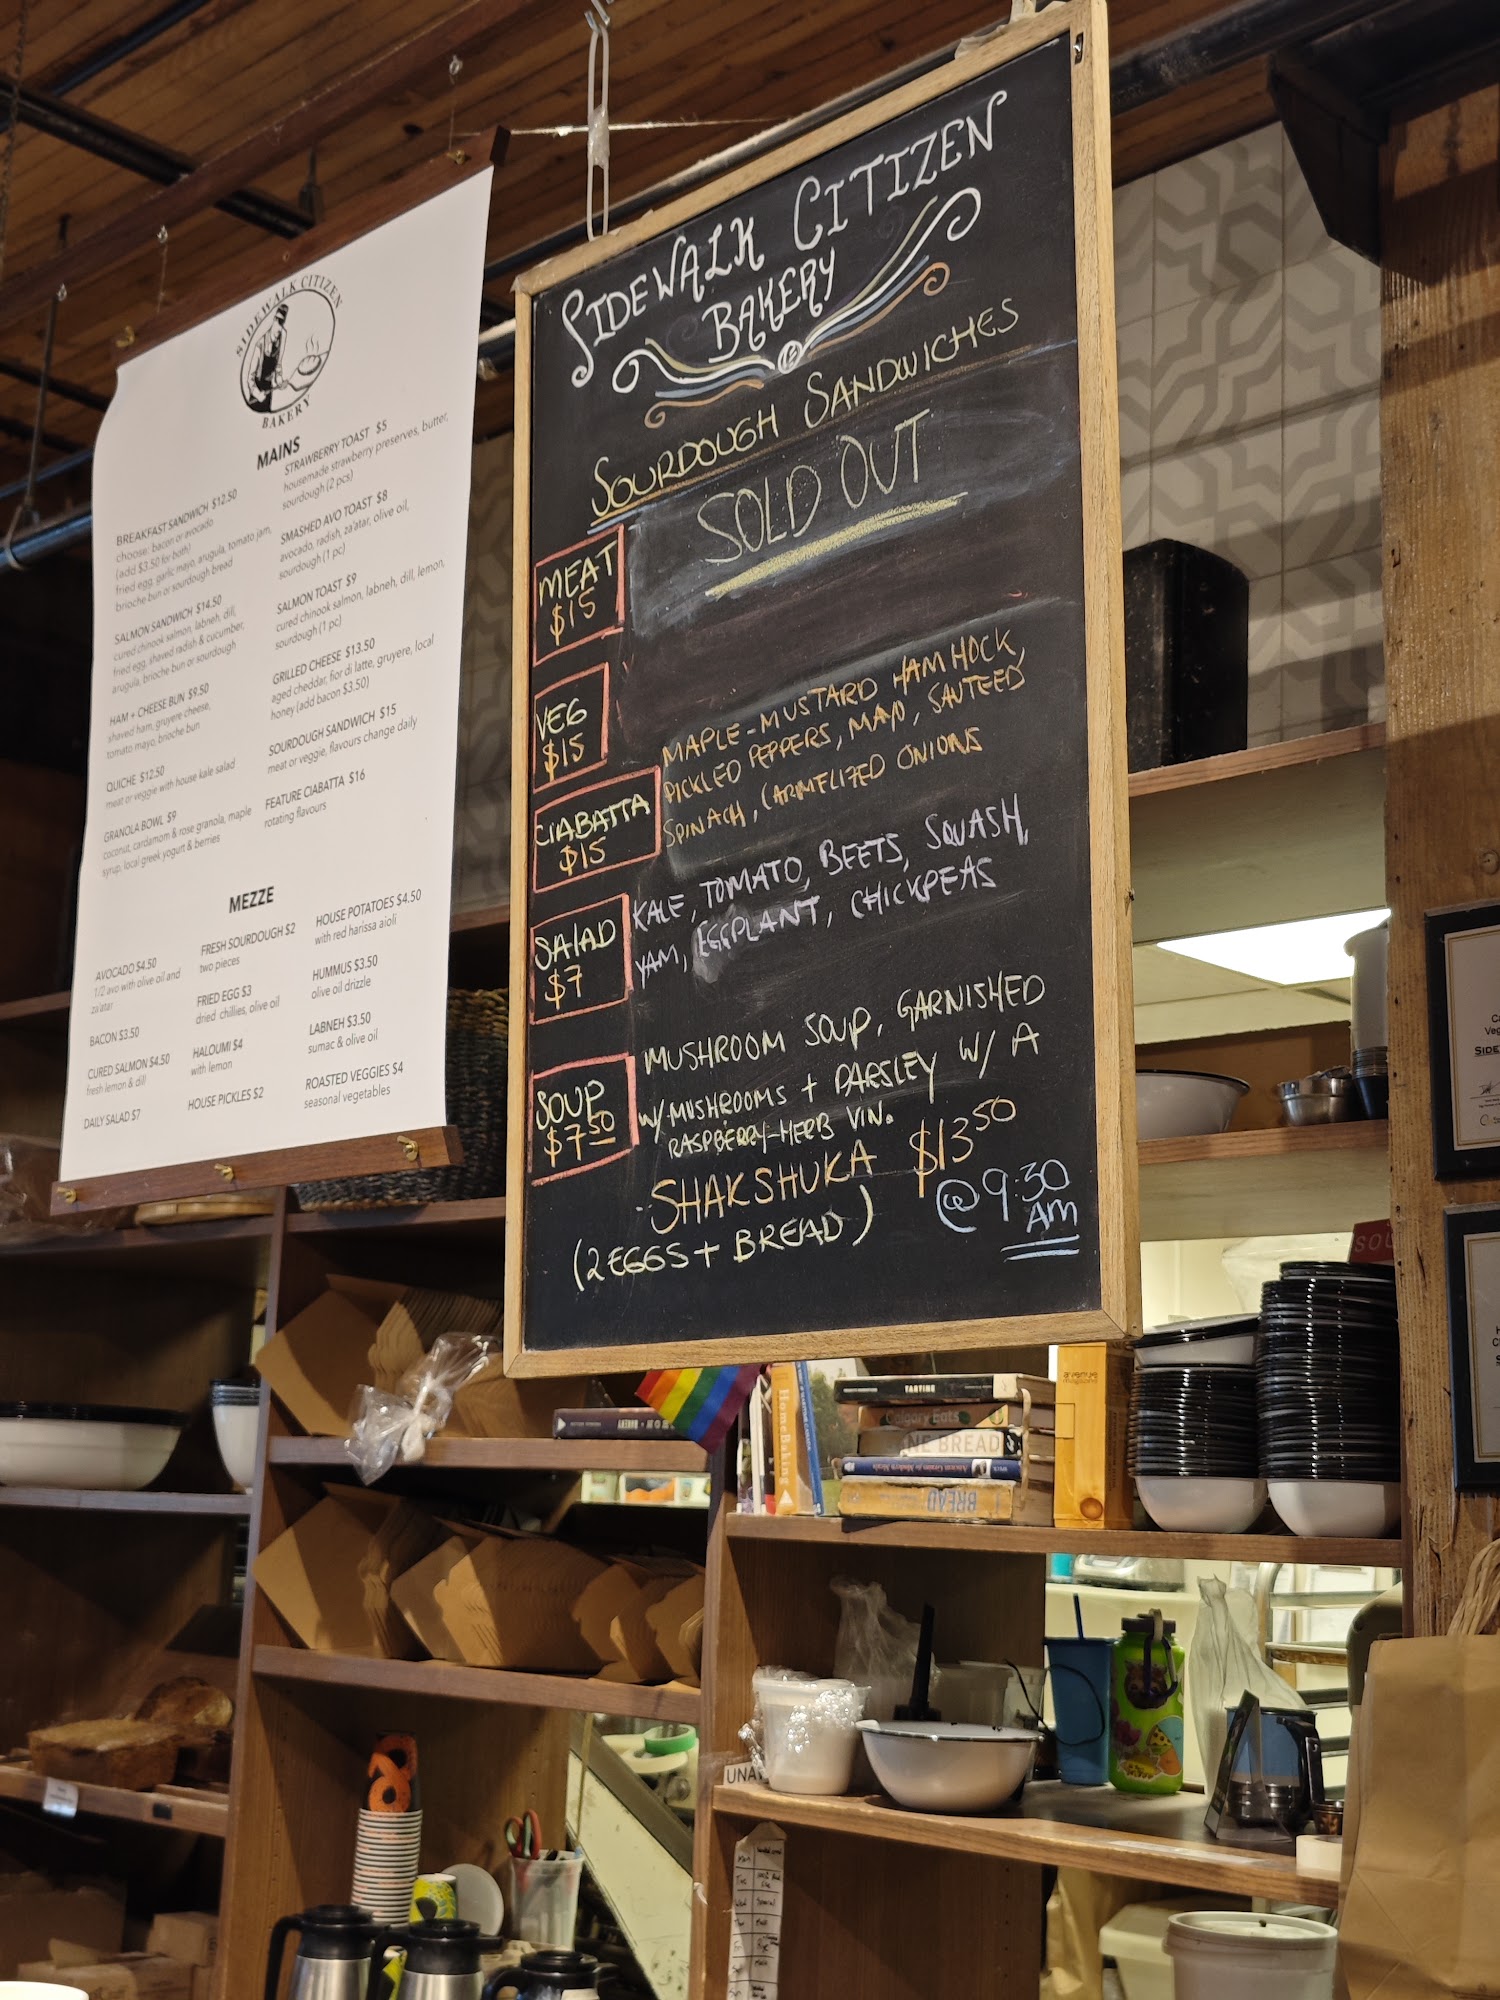 SIDEWALK CITIZEN
BAKERY
MAINS
BREAKFAST SANDWICH $12.50
choose: bacon or avocado
(add $3.50 for both)
fried egg, garlic mayo, arugula, tomato jam,
brioche bun or sourdough bread
SALMON SANDWICH $14.50
cured chinook salmon, labneh, dill,
fried egg, shaved radish & cucumber,
arugula, brioche bun or sourdough
HAM + CHEESE BUN $9.50
shaved ham, gruyere cheese,
tomato mayo, brioche bun
QUICHE $12.50
meat or veggie with house kale salad
GRANOLA BOWL $9
coconut, cardamom & rose granola, maple
syrup, local greek yogurt & berries
STRAWBERRY TOAST $5
housemade strawberry preserves, butter,
sourdough (2 pcs)
SMASHED AVO TOAST $8
avocado, radish, za'atar, olive oil,
sourdough (1 pc)
SALMON TOAST $9
cured chinook salmon, labneh, dill, lemon,
sourdough (1 pc)
GRILLED CHEESE $13.50
aged cheddar, fior di latte, gruyere, local
honey (add bacon $3.50)
SOURDOUGH SANDWICH $15
meat or veggie, flavours change daily
FEATURE CIABATTA $16
rotating flavours
MEZZE
AVOCADO $4.50
1/2 avo with olive oil and
za'atar
BACON $3.50
CURED SALMON $4.50
fresh lemon & dill
DAILY SALAD $7
FRESH SOURDOUGH $2
two pieces
FRIED EGG $3
dried chillies, olive oil
HALOUMI $4
with lemon
HOUSE PICKLES $2
HOUSE POTATOES $4.50
with red harissa aioli
HUMMUS $3.50
olive oil drizzle
LABNEH $3.50
sumac & olive oil
ROASTED VEGGIES $4
seasonal vegetables
SIDEWALK CITIZEN
BAKERY
SOURDOUGH SANDWICHES
SOLD OUT
MEAT
$15
VEG
$15
CIABATTA
$15
MAPLE-MUSTARD HAM HOCK,
PICKLED PEPPERS, MAYO, SAUTEED
SPINACH, CARMELIZED ONIONS
SALAD
$7
KALE, TOMATO, BEETS, SQUASH,
YAM, EGGPLANT, CHICKPEAS
SOUP
$7.50
MUSHROOM SOUP, GARNISHED
W/ MUSHROOMS + PARSLEY W/ A
RASPBERRY-HERB VIN.
-SHAKSHUKA $13.50
(2 EGGS + BREAD) @ 9:30
AM
HomeBaking
TARTINE
Calgary Eats
NE BREAD
BREAD
UNA